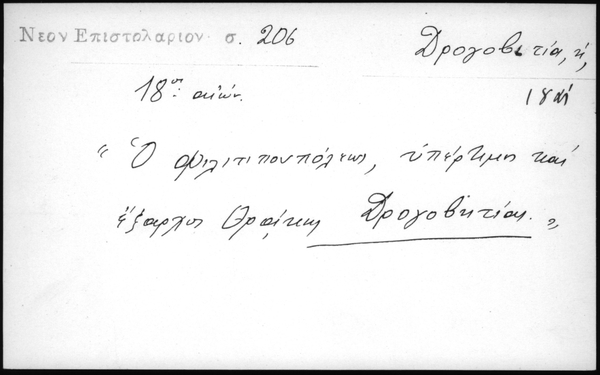 Νεον Επιστολαριον σ. 206
Δρογοβιτία, ἡ,
18ος αἰών.
“ Ὁ Φιλιππουπόλεως, ὑπέρτιμος καὶ
ἔξαρχος Θρᾴκης Δρογοβητίας. „